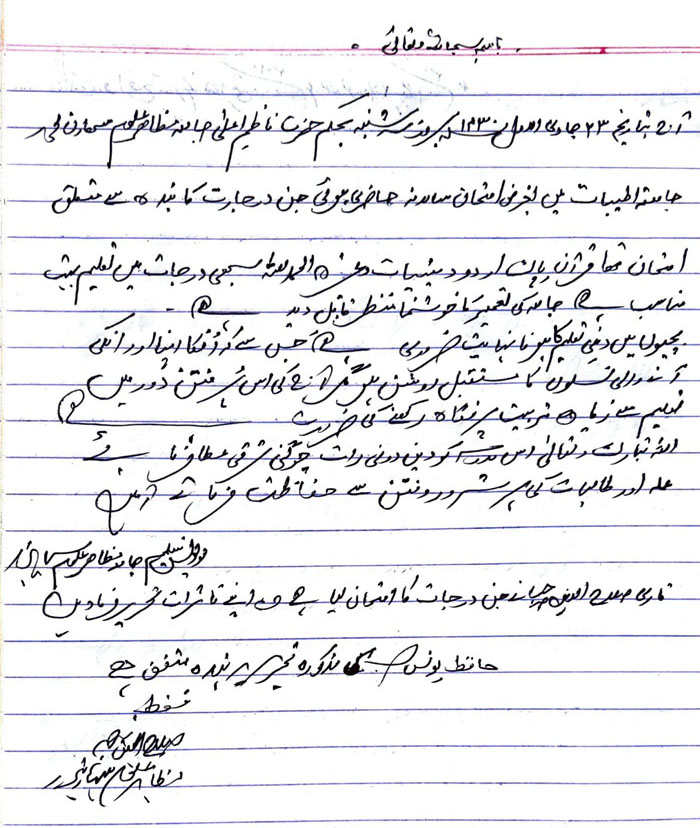 باسمہ سبحانہ وتعالیٰ
آج بتاریخ ۲۳ جمادی الاول ۱۴۳۰ھ بروز سہ شنبہ بحکم حضرت ناظم اعلیٰ جامعہ مظاہر علوم سہارن پور
جامعۃ الطیبات میں بغرض امتحان سالانہ حاضری ہوئی جن درجات کا بندہ سے متعلق
امتحان تھا قرآن پاک اردو دینیات وغیرہ الحمد للہ سبھی درجات میں تعلیم بہت
مناسب ہے جامعہ کی تعمیر کا خوشنما منظر قابل دید ہے -
بچیوں میں دینی تعلیم کا ہونا نہایت ضروری ہے جس سے کہ انکا اپنا اور انکی
آنے والی نسلوں کا مستقبل روشن ہو مگر آج کی اس پُر فتن دُور میں
تعلیم سے زیادہ تربیت پر نگاہ رکھنے کی ضرورت ہے
اللہ تبارک وتعالیٰ اس مدرسہ کو دین دونی رات چوگنی ترقی عطا فرمائے
عملہ اور طالبات کی ہر شرور وفتن سے حفاظت فرمائے آمین
جامعہ مظاہر علوم سہارنپور
قاری صلاح الدین صاحب نے جن درجات کا امتحان لیا ہے وہ اپنے تاثرات تحریر فرمادیں
حافظ یونس کی مذکورہ تحریر پر بندہ متفق ہے
فقط
صلاح الدین
مظاہر علوم سہارنپور